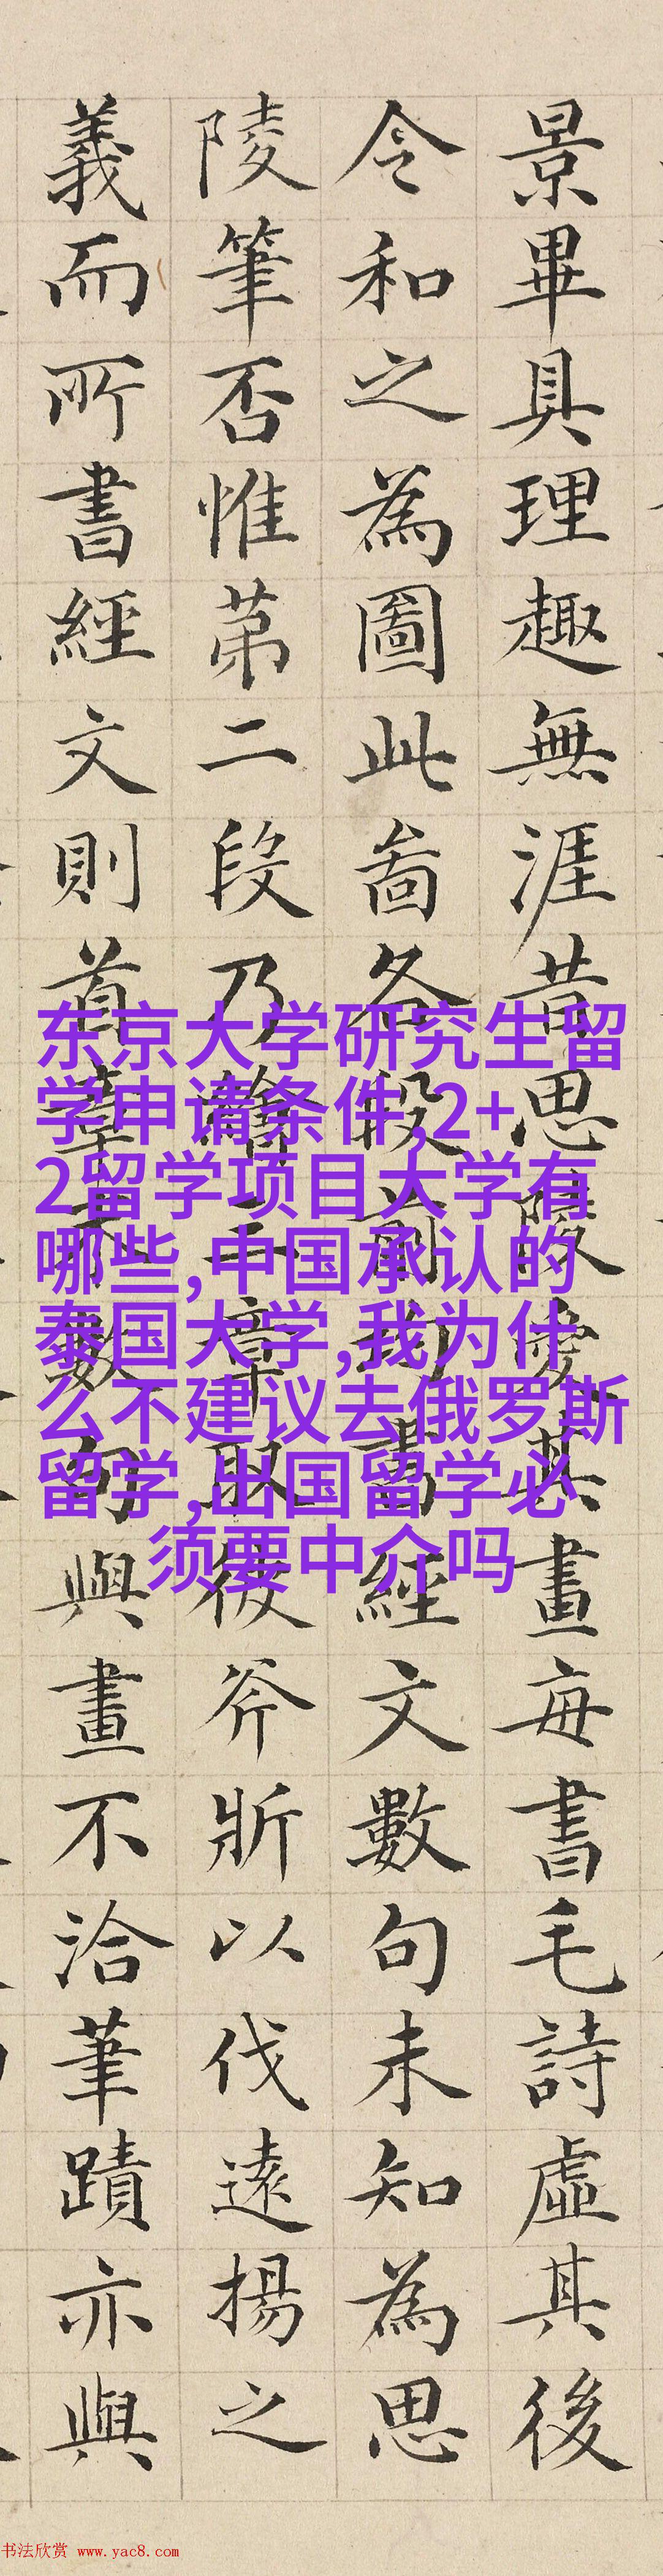 景畢具理趣無涯昔思陵愛其畫每書毛詩虛其後
令和之為圖此啚各段前均書經文數句未知為思
陵筆否惟苐二段乃繪章取彼斧斨以伐遠揚之
義而所書經文則首章數句與畫不洽筆蹟亦與
东京大学研究生留
学申请条件,2+
2留学项目大学有
哪些,中国承认的
泰国大学,我为什
么不建议去俄罗斯
留学,出国留学必
须要中介吗
书法欣赏 www.yac8.com